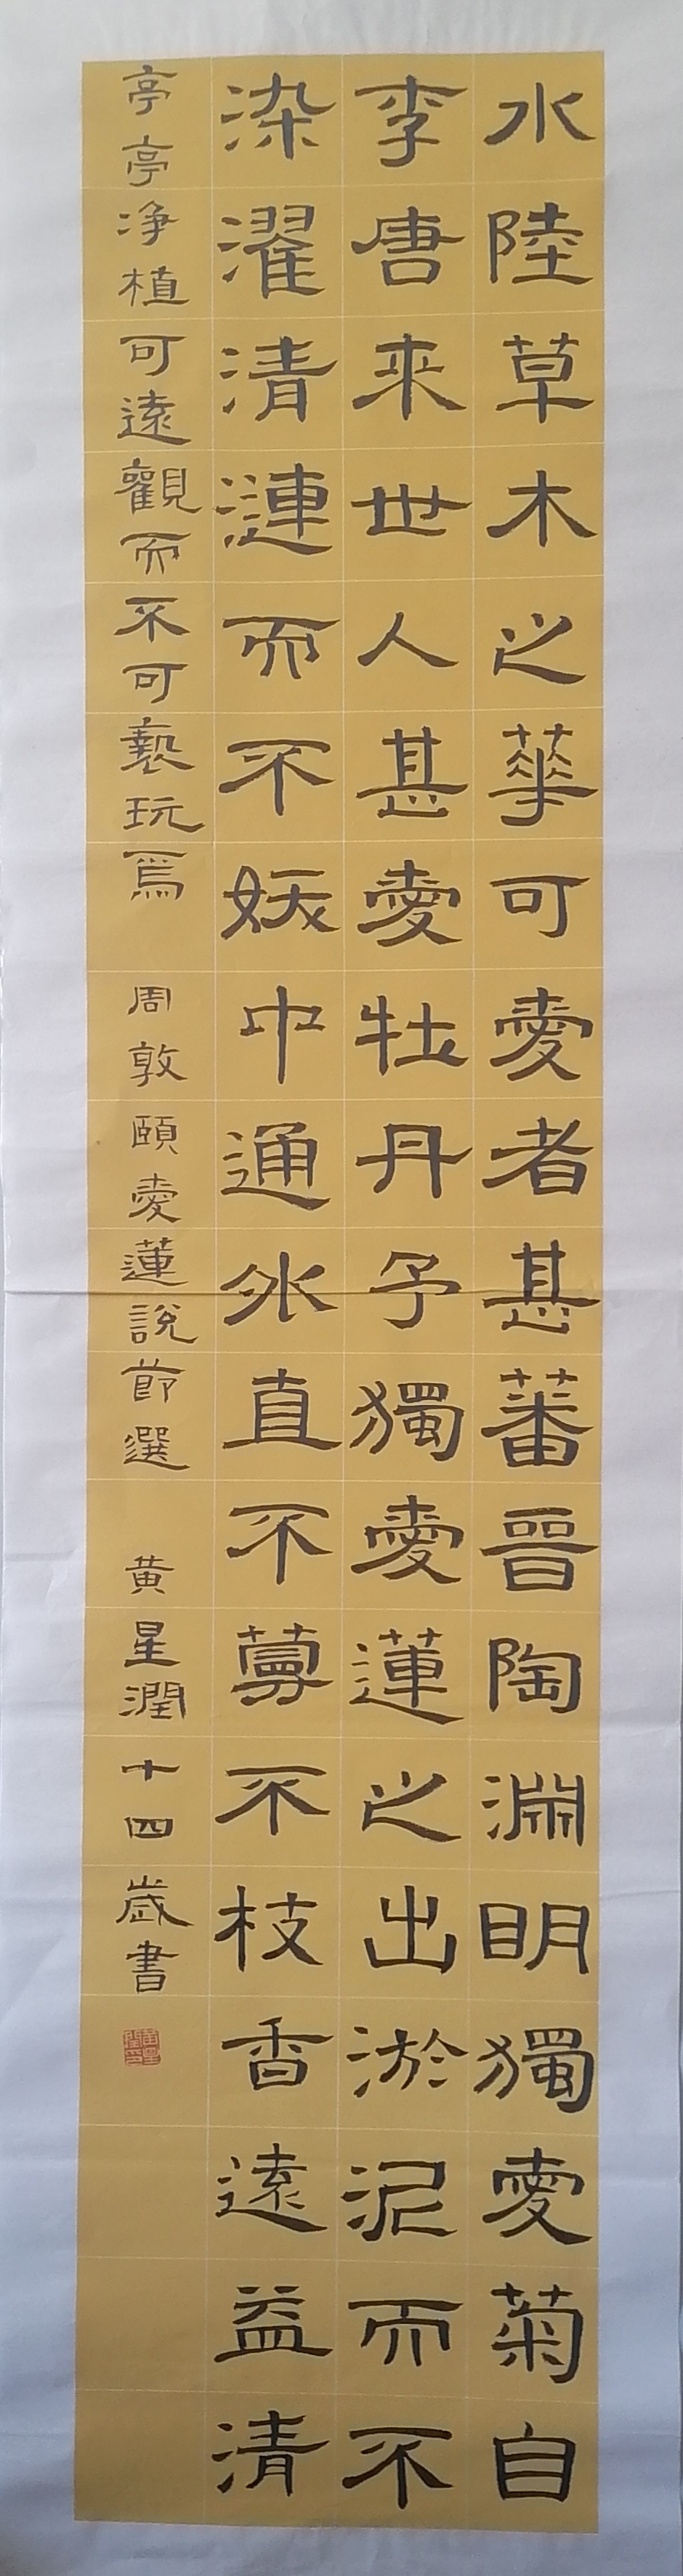 水陸草木之華可愛者甚蕃晉陶淵明獨愛菊自
李唐來世人甚愛牡丹予獨愛蓮之出淤泥而不
染濯清漣而不妖中通外直不蔓不枝香遠益清
亭亭净植可遠觀而不可褻玩焉 周敦頤愛蓮說節選 黄星潤十四歲書